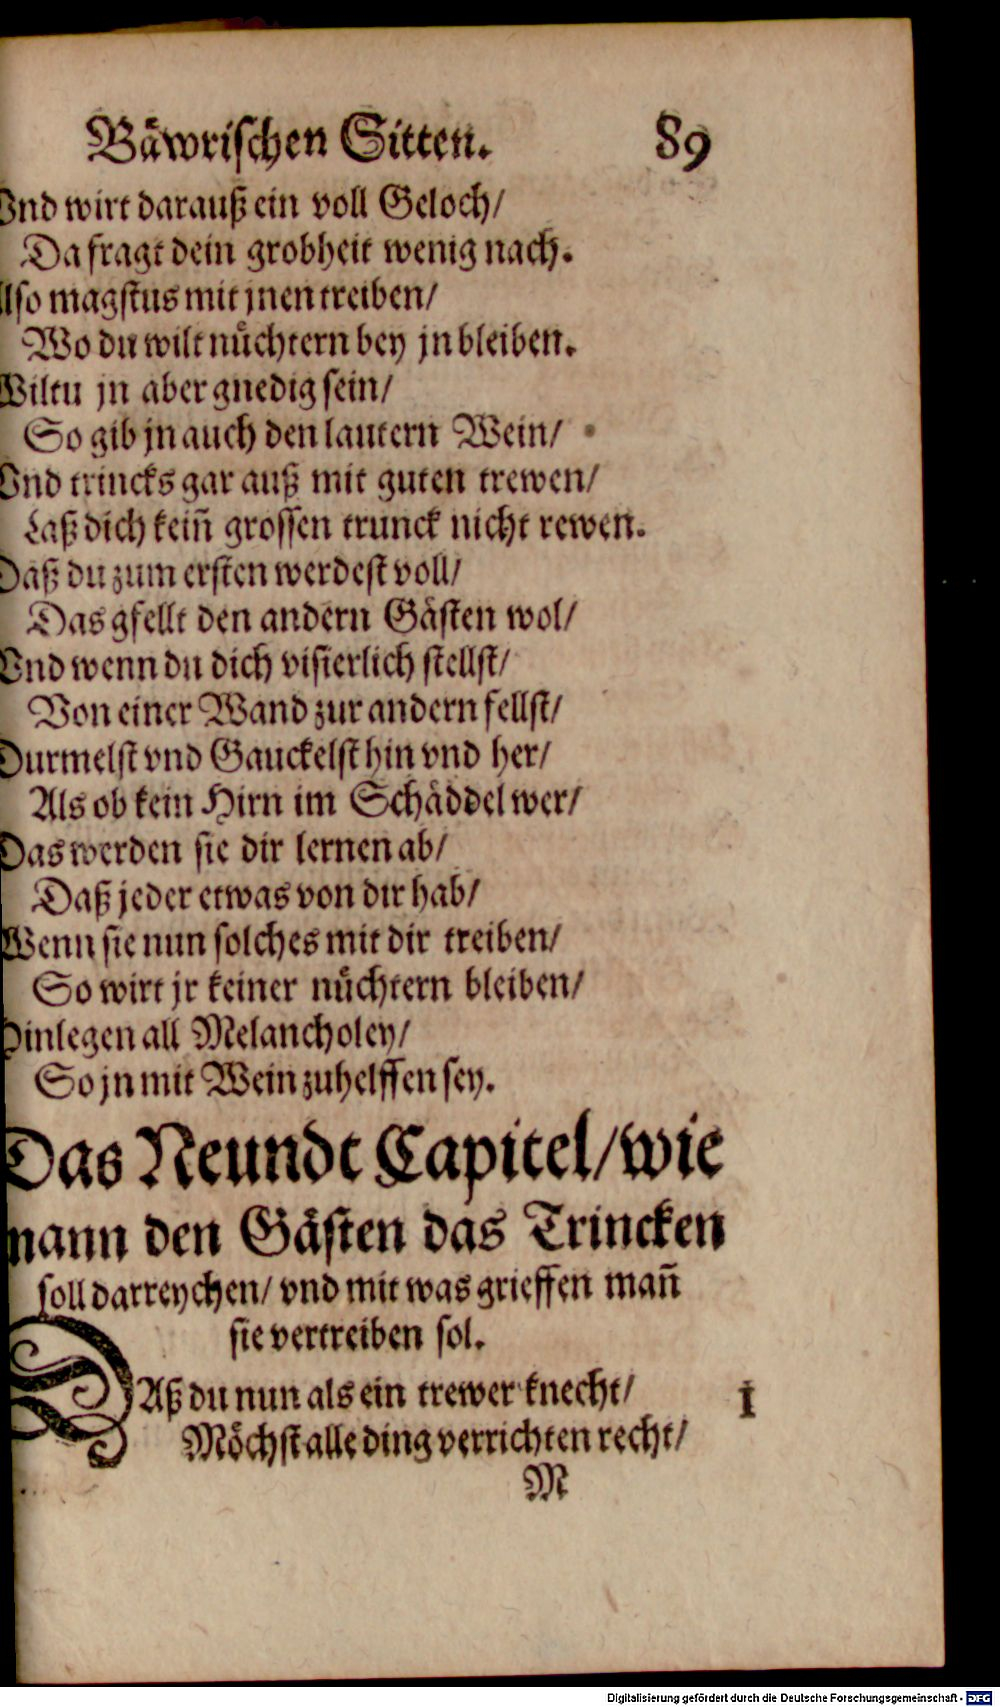 Bäwrischen Sitten. 89
Vnd wirt darauß ein voll Geloch/
Da fragt dein grobheit wenig nach.
Also magstus mit jnen treiben/
Wo du wilt nüchtern bey jn bleiben.
Wiltu jn aber gnedig sein/
So gib jn auch den lautern Wein/
Vnd trincks gar auß mit guten trewen/
Laß dich keiñ grossen trunck nicht rewen.
Daß du zum ersten werdest voll/
Das gfellt den andern Gästen wol/
Vnd wenn du dich visierlich stellst/
Von einer Wand zur andern fellst/
Durmelst vnd Gauckelst hin vnd her/
Als ob kein Hirn im Schäddel wer/
Das werden sie dir lernen ab/
Daß jeder etwas von dir hab/
Wenn sie nun solches mit dir treiben/
So wirt jr keiner nüchtern bleiben/
Hinlegen all Melancholey/
So jn mit Wein zuhelffen sey.
Das Neundt Capitel/ wie
mann den Gästen das Trincken
soll darreychen/ vnd mit was grieffen mañ
sie vertreiben sol.
DAß du nun als ein trewer knecht/ 1
Möchst alle ding verrichten recht/
M
Digitalisierung gefördert durch die Deutsche Forschungsgemeinschaft - DFG